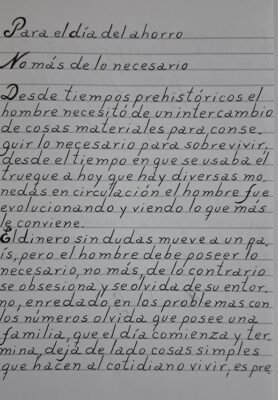 Para el día del ahorro
No más de lo necesario
Desde tiempos prehistóricos el
hombre necesitó de un intercambio
de cosas materiales para conse
guir lo necesario para sobrevivir,
desde el tiempo en que se usaba el
trueque a hoy que hay diversas mo
nedas en circulación el hombre fue
evolucionando y viendo lo que más
le conviene.
El dinero sin dudas mueve a un pa
ís, pero el hombre debe poseer lo
necesario, no más, de lo contrario
se obsesiona y se olvida de su entor
no, enredado en los problemas con
los números olvida que posee una
familia, que el día comienza y ter
mina, deja de lado cosas simples
que hacen al cotidiano vivir, es pre